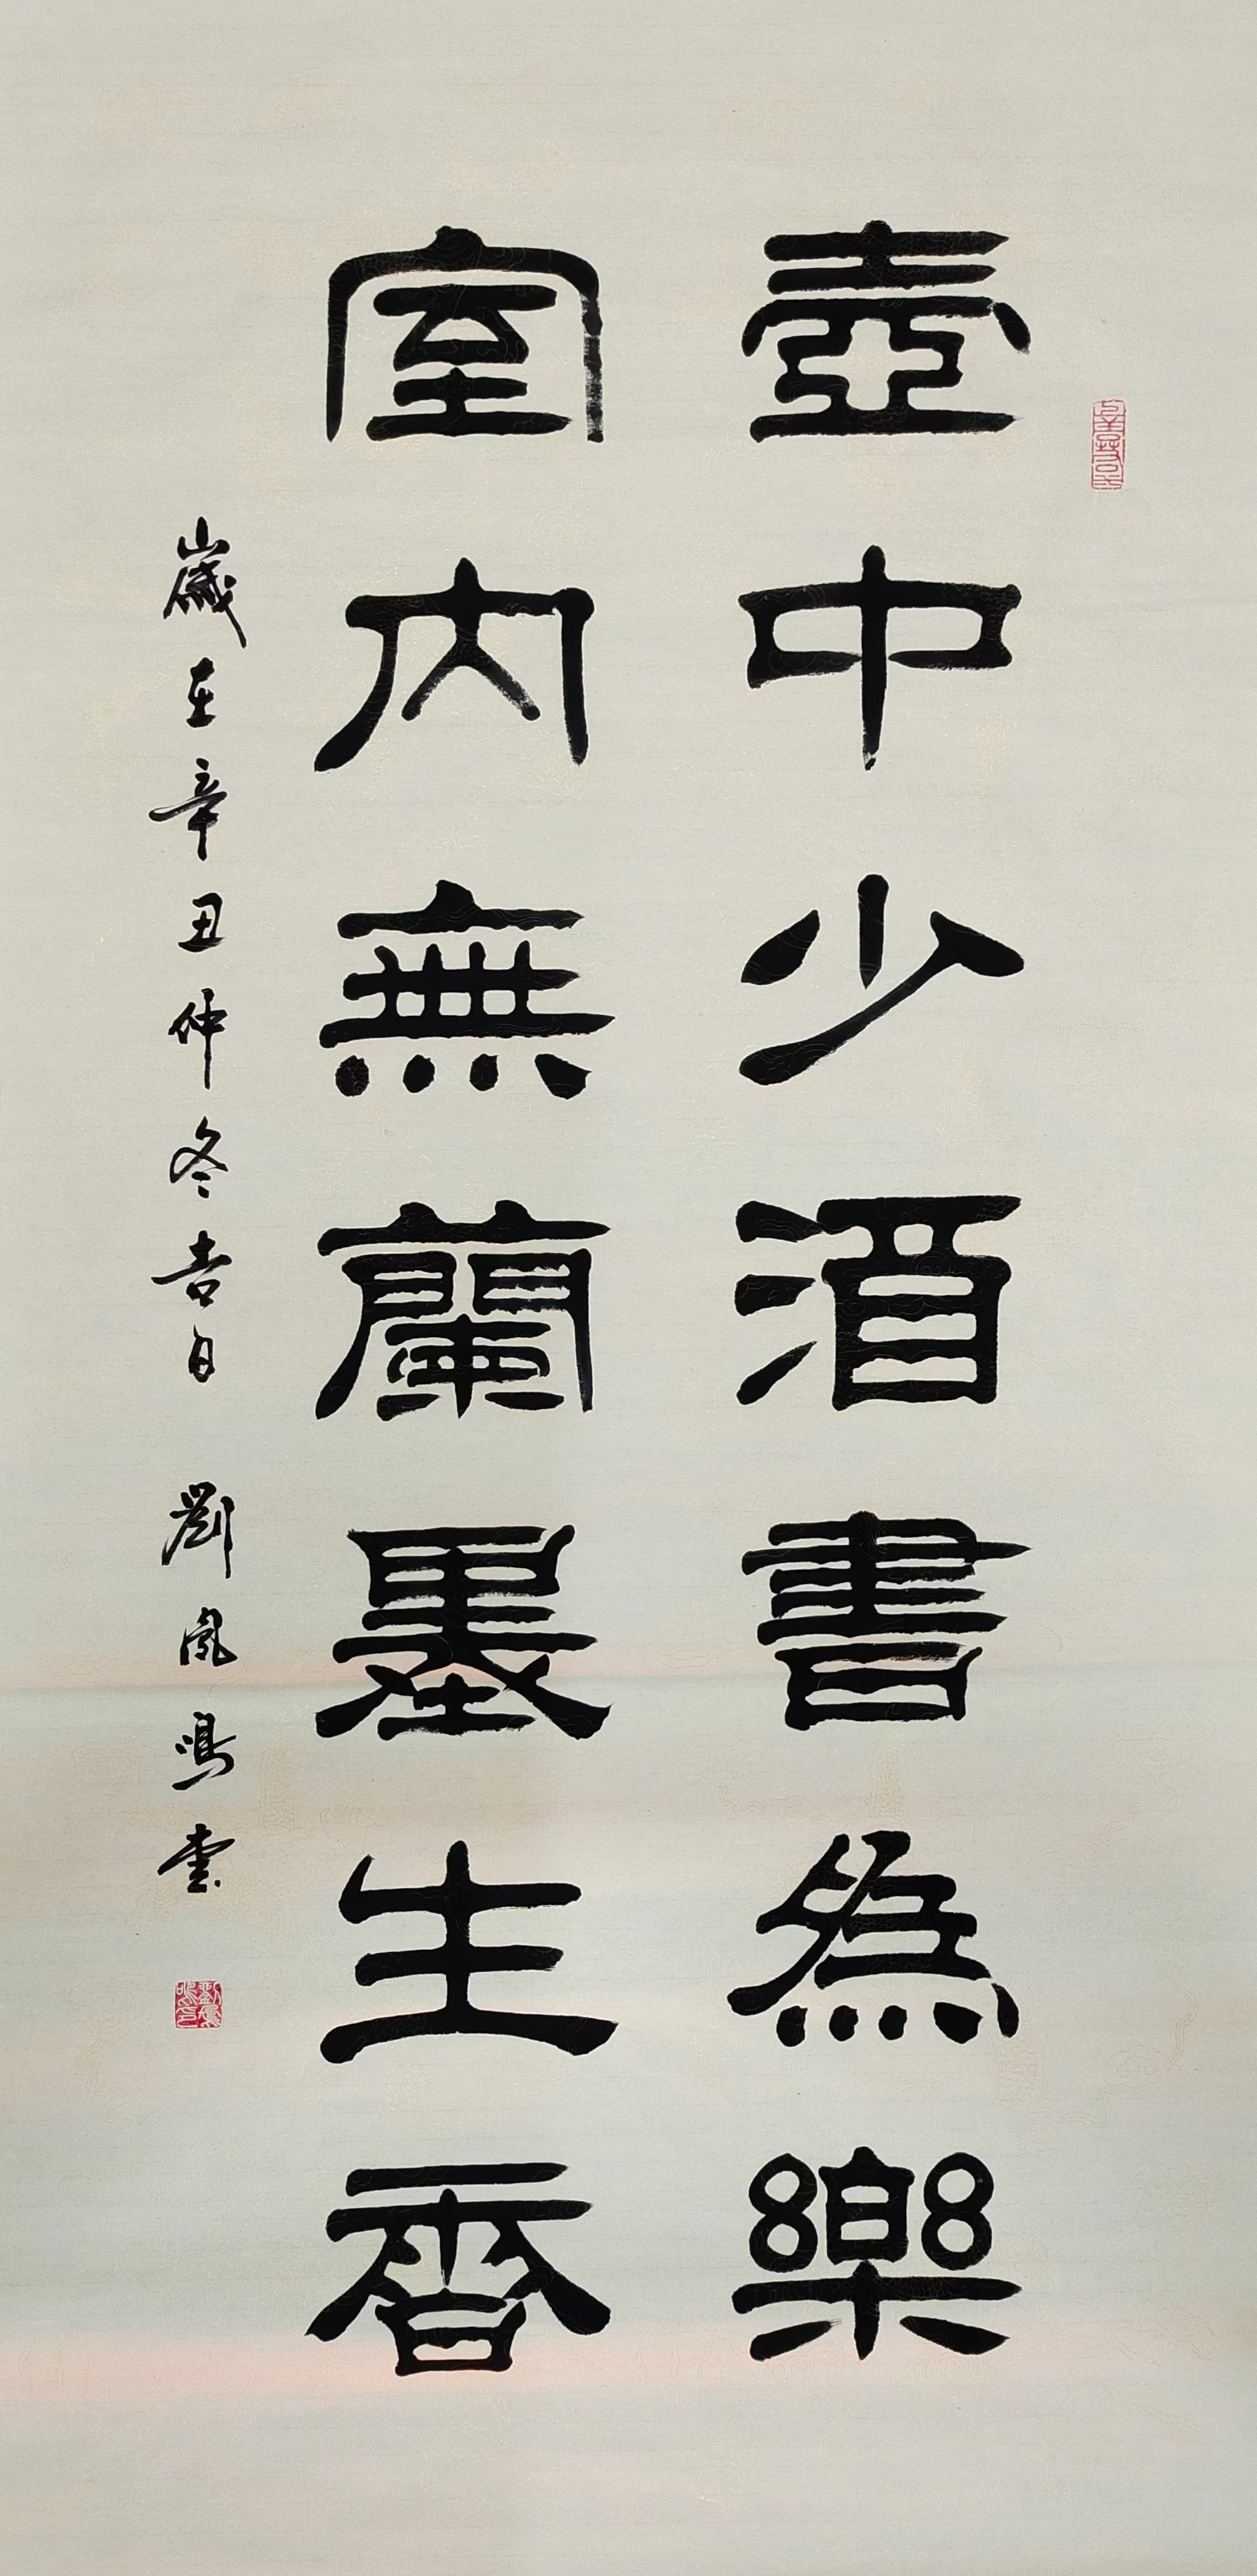 壺中少酒書為樂
室內無蘭墨生香
歲在辛丑仲冬吉日 劉鳳鳴書